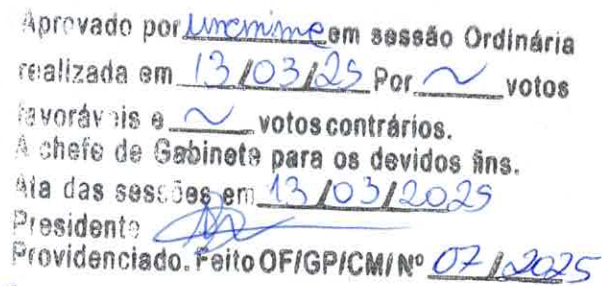 Aprovado por unânime em sessão Ordinária
realizada em 13/03/25 Por ~ votos
favoráveis e ~ votos contrários.
A chefe de Gabinete para os devidos fins.
Ata das sessões em 13/03/2025
Presidente
Providenciado. Feito OF/GP/CM/Nº 07/2025